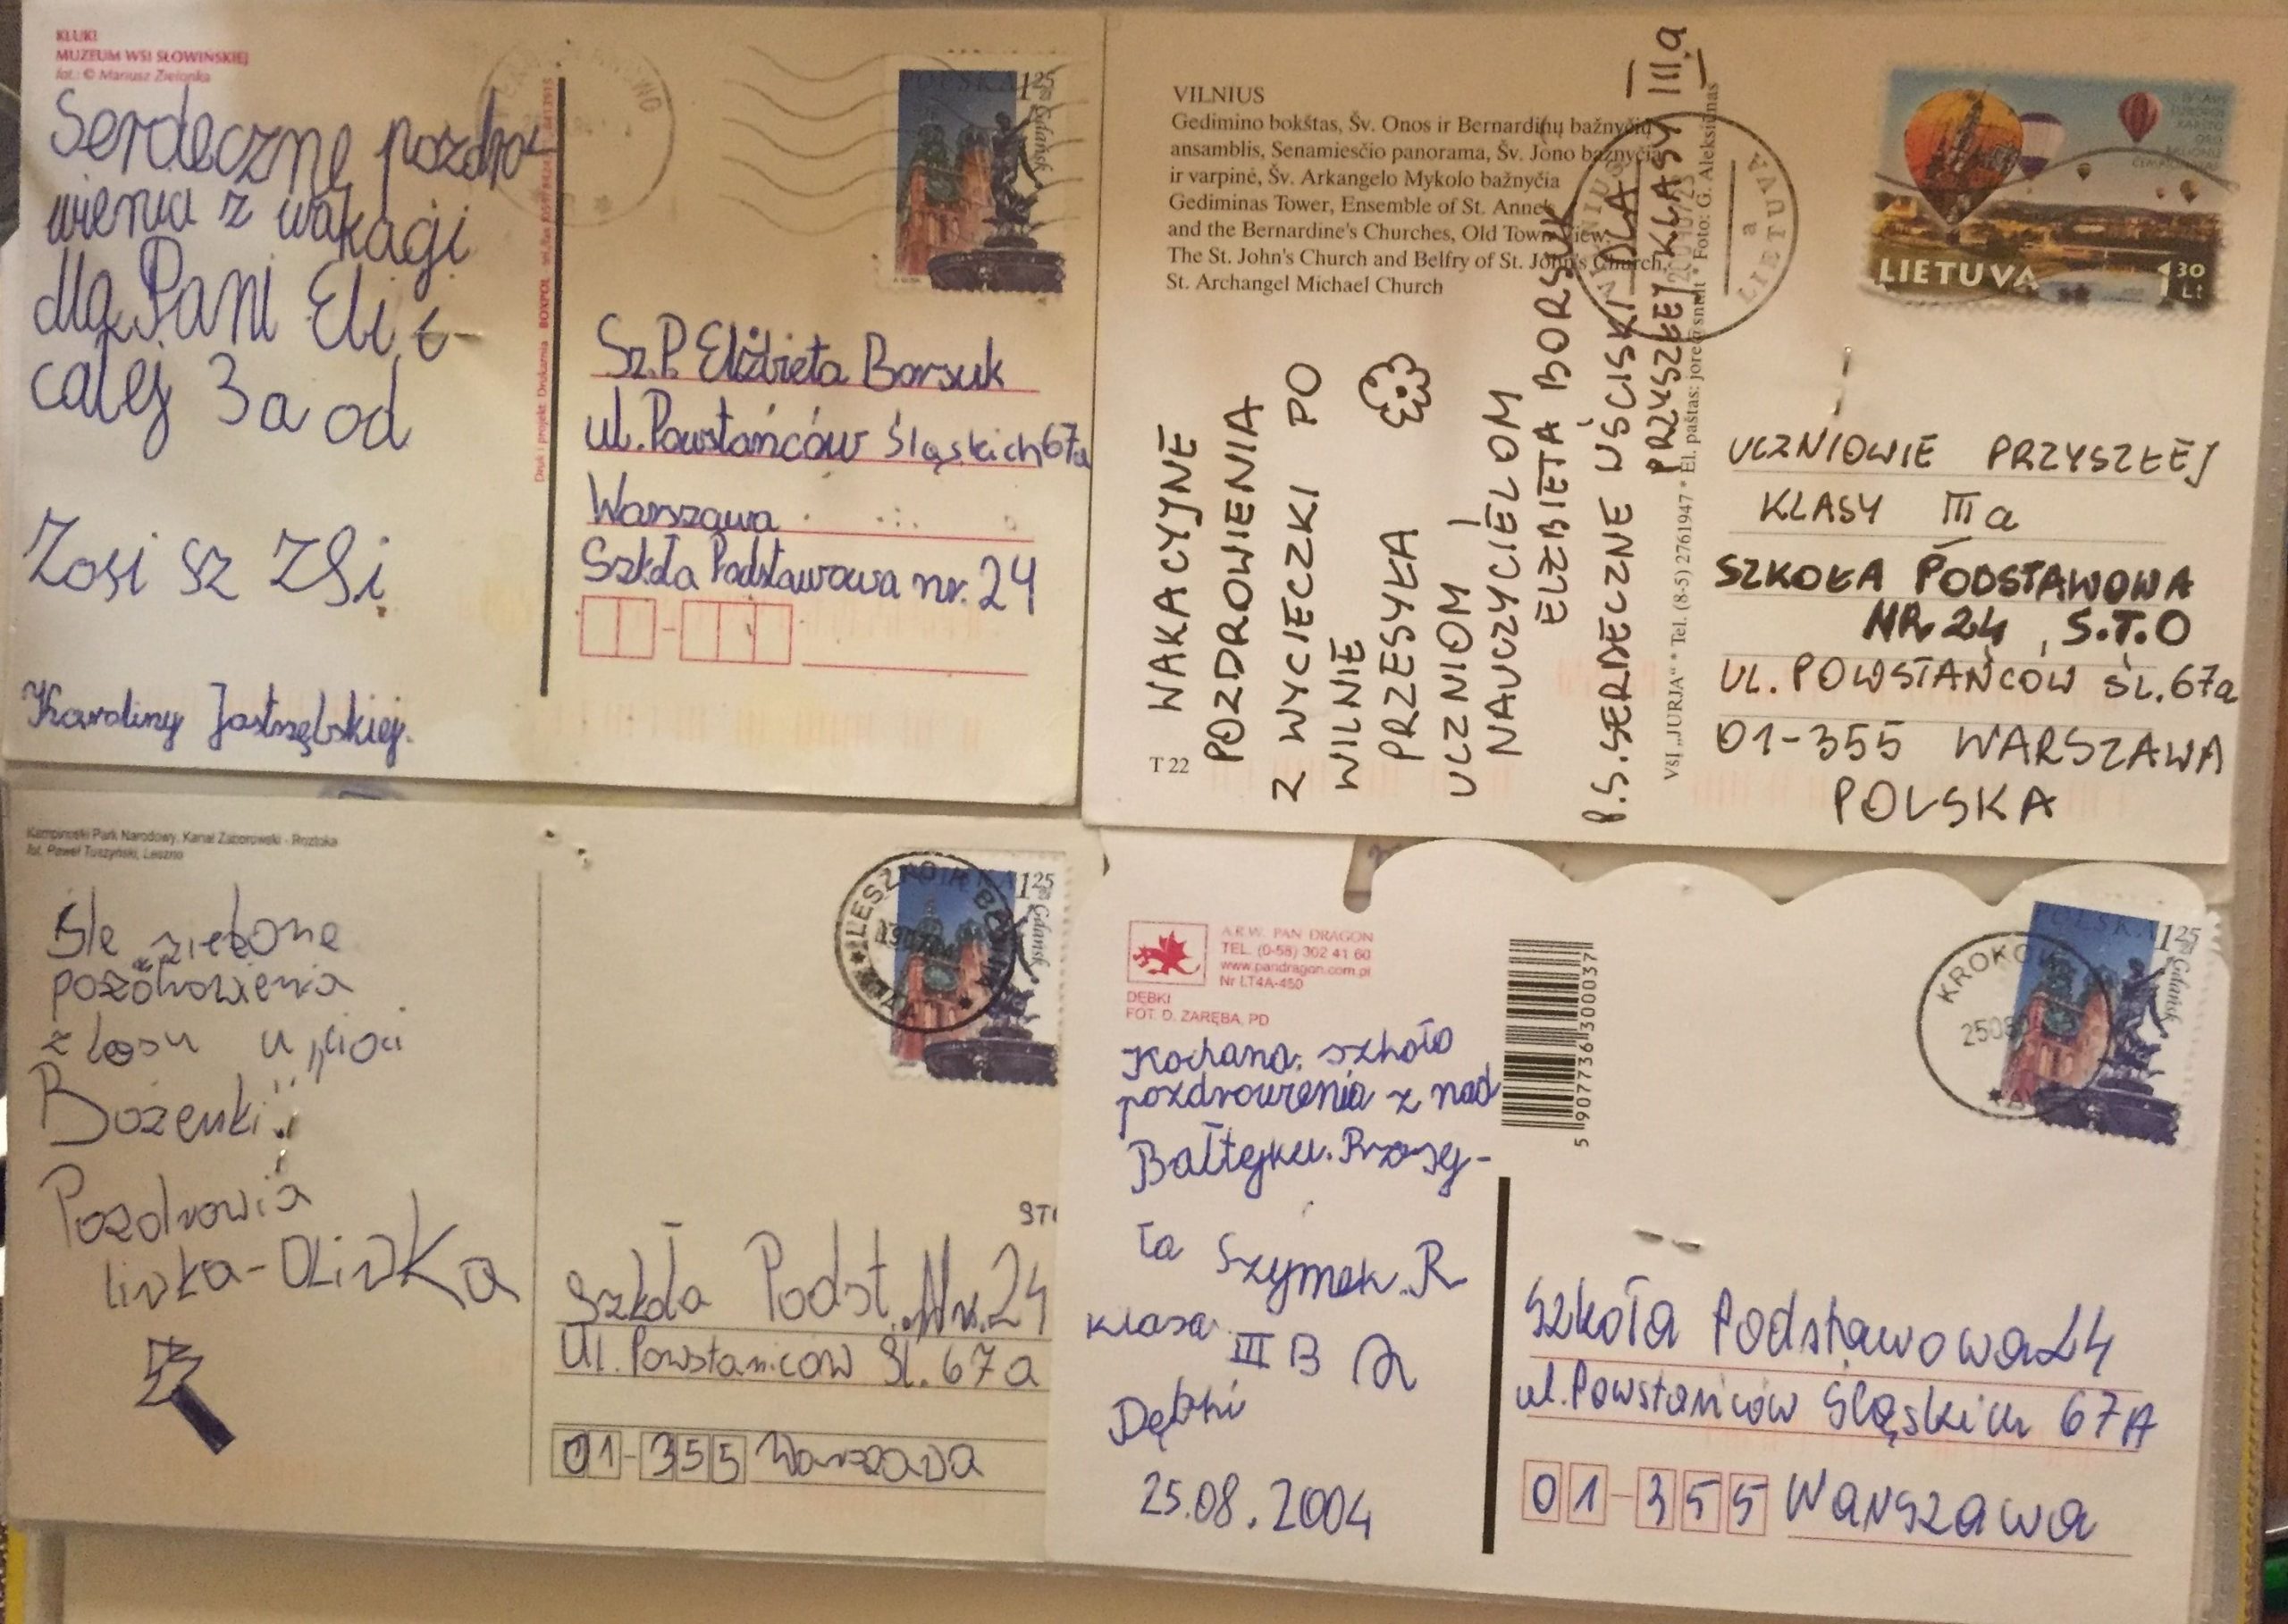 KLUKI
MUZEUM WSI SŁOWIŃSKIEJ
fot.: © Mariusz Zielonka
Serdeczne pozdro
wienia z wakagi
dla Pani Eli i
całej 3a od
Zosi sz
Karoliny Jastrzębskiej.
Druk i projekt: Drukarnia BOXPOL
POLSKA 1 25
Gdańsk
Sz.P. Elżbieta Borsuk
ul. Powstańców Śląskich 67a
Warszawa
Szkoła Podstawowa nr. 24
VILNIUS
Gedimino bokštas, Šv. Onos ir Bernardinų bažnyčių
ansamblis, Senamiesčio panorama, Šv. Jono bažnyčia
ir varpinė, Šv. Arkangelo Mykolo bažnyčia
Gediminas Tower, Ensemble of St. Anne's
and the Bernardine's Churches, Old Town View,
The St. John's Church and Belfry of St. John's Church,
St. Archangel Michael Church
T 22
WAKACYJNE
POZDROWIENIA
Z WYCIECZKI PO
WILNIE
PRZESYŁA
UCZNIOM I
NAUCZYCIELOM
ELŻBIETA BORSUK
P.S. SERDECZNE UŚCISKI DLA
PRZYSZŁEJ KLASY III a
VšĮ „JURJA“ * Tel. (8-5) 2761947 * El. paštas: jore@ * Foto: G. Aleksiūnas
VILNIUS
LIETUVA
a
LIETUVA
1 30 Lt
UCZNIOWIE PRZYSZŁEJ
KLASY III a
SZKOŁA PODSTAWOWA
NR 24, S.T.O
UL. POWSTAŃCÓW ŚL. 67a
01-355 WARSZAWA
POLSKA
Kampinoski Park Narodowy, Kanał Zaborowski - Roztoka
fot. Paweł Tuszyński, Leszno
Śle zielone
pozdrowienia
z lasu u „cioci
Bożenki"
Pozdrowia
liwka-OLiwKa
LESZNO K. BŁONIA
1 25
Gdańsk
STO
Szkoła Podst. Nr. 24
Ul. Powstanców Śl. 67a
01-355 Warszawa
A.R.W. PAN DRAGON
TEL. (0-58) 302 41 60
www.pandragon.com.pl
Nr LT4A-450
DĘBKI
FOT. D. ZARĘBA, PD
5 907736 300037
Kochana szkoło
pozdrowienia z nad
Bałtyku. Przesy-
ła Szymek. R
klasa III B
Dębki
25.08.2004
KROKOWA
POLSKA 1 25
Gdańsk
Szkoła Podstawowa 24
ul. Powstańców Śląskich 67A
01-355 Warszawa